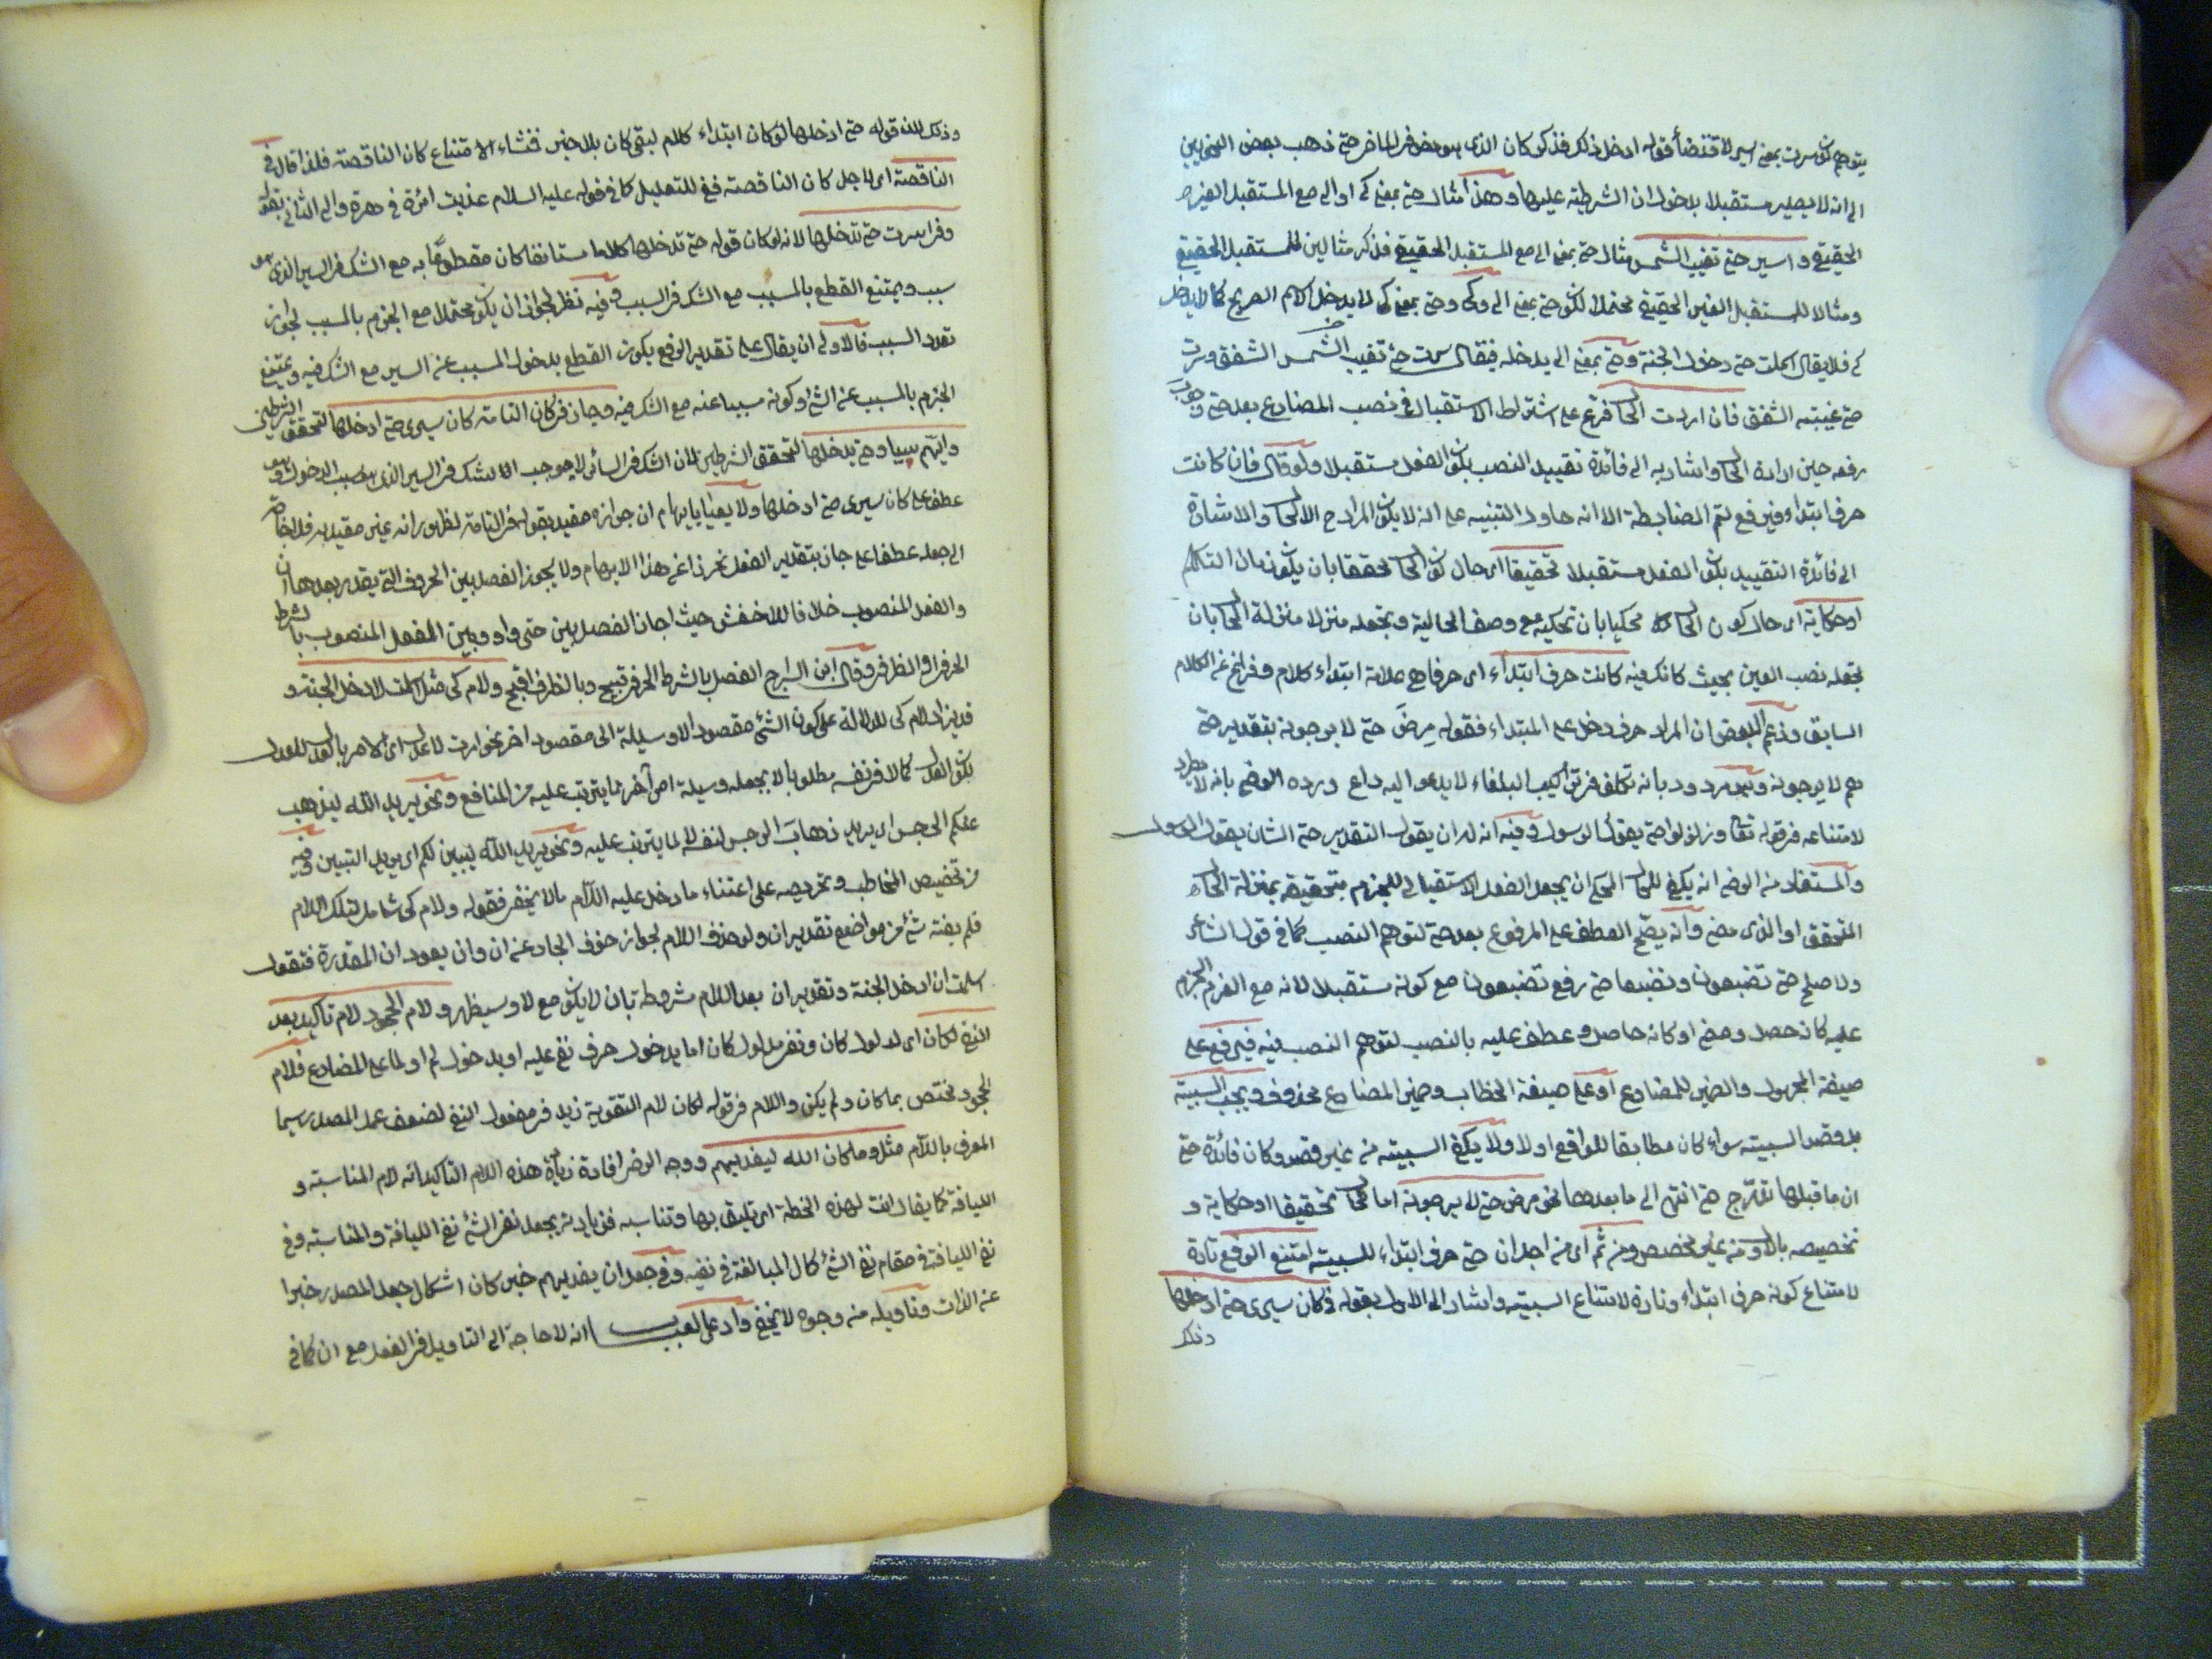 يتوهم كون سرت بمعنى اسير لاقتضاء قوله ادخل ذلك فذكر كان الذى هو نص فى الماضى حتى ذهب بعض النحويين
الى انه لا يصير مستقبلا بدخول ان الشرطية عليها وهذا مثال حتى بمعنى كى او الى مع المستقبل الغير
الحقيقى واسير حتى تغيب الشمس مثال حتى بمعنى الى مع المستقبل الحقيقى فذكر مثالين للمستقبل الحقيقى
ومثالا للمستقبل الغير الحقيقى محتملا لكون حتى بمعنى الى وكى وحتى بمعنى كى لا يدخل الاسم الصريح كما لا يدخل
كى فلا يقال اسلمت حتى دخول الجنة وحتى بمعنى الى يدخله فيقال سرت حتى تغيب الشمس الشفق وسرت
حتى غيبته الشفق فان اردت الحال فرع على اشتراط الاستقبال فى نصب المضارع بعد حتى وجوب
رفعه حين ارادة الحال واشار به الى فائدة تقييد النصب بكون الفعل مستقبلا ولو قال فان كانت
حرف ابتداء فيرفع لتم الضابطة الا انه حاول التنبيه على انه لا يكون المراد ح الا الحال والاشارة
الى فائدة التقييد بكون الفعل مستقبلا تحقيقا اى حال كون الحال محققا بان يكون زمان التكلم
او حكاية اى حال كون الحال محكيا بان تحكيه مع وصف الحالية وتجعله منزلا منزلة الحال بان
تجعله نصب العين بحيث كانك فيه كانت حرف ابتداء اى حرفا هى علامة ابتداء كلام وفراغ عن الكلام
السابق وزعم البعض ان المراد حرف دخل على المبتداء فقوله مرض حتى لا يرجونه بتقدير حتى
هم لا يرجونه وهو مردود بانه تكلف فى تراكيب البلغاء لا يدعو اليه داع ورده الرضى بانه لا يطرد
لامتناعه فى قوله تعا وزلزلوا حتى يقول الرسول وفيه انه له ان يقول التقدير حتى الشان يقول الرسول
والمستفاد من الرضى انه يكفى للحال المحكى ان يجعل الفعل الاستقبالى للجزم بتحقيقه بمنزلة الحال
المتحقق او الذى مضى وانه يصح العطف على المرفوع بعد حتى لتوهم النصب كما فى قول الشاعر
ولا صلح حتى تضبعون ونضبعا حتى رفع تضبعون مع كونه مستقبلا لانه مع العزم الجزم
عليه كانه حصل ومضى او كانه حاصل وعطف عليه بالنصب لتوهم النصب فيه فيرفع على
صيغة المجهول والضمير للمضارع او على صيغة الخطاب وضمير المضارع محذوف ويجب السببية
بل قصد السببية سواء كان مطابقا للواقع اولا ولا يكفى السببية من غير قصد وكان فائدة حتى
ان ما قبلها تدرج حتى انتهى الى ما بعدها نحو مرض حتى لا يرجونه اما حالا تحقيقا او حكاية و
تخصيصه بالاول من غير مخصص ومن ثم اى من اجل ان حتى حرف ابتداء للسببية امتنع الرفع تارة
لامتناع كونه حرف ابتداء وتارة لامتناع السببية واشار الى الاول بقوله فى كان سيرى حتى ادخلها
وذلك
وذلك لان قوله حتى ادخلها لو كان ابتداء كلام لبقى كان بلا خبر فنشاء الامتناع كان الناقصة فلذا قال فى
الناقصة اى لاجل كان الناقصة ففى للتعليل كما فى قوله عليه السلام عذبت امرأة فى هرة والى الثانى بقوله
وفى اسرت حتى تدخلها لانه لو كان قوله حتى تدخلها كلاما مستانفا كان مقطوعا به مع الشك فى السير الذى هو
سبب ويمتنع القطع بالمسبب مع الشك فى السبب وفيه نظر لجواز ان يكون محتملا مع الجزم بالمسبب لجواز
تعدد السبب فالاولى ان يقال على تقدير الرفع يكون القطع بدخول المسبب عن السير مع الشك فيه ويمتنع
الجزم بالمسبب عن الشئ او كونه سببا عنه مع الشك فيه وجاز فى كان التامة كان سيرى حتى ادخلها لتحقق الشرطين
وايهم سار حتى يدخلها لتحقق الشرطين لان الشك فى السائر لا يوجب الشك فى السير الذى هو سبب الدخول وهو
عطف على كان سيرى حتى ادخلها ولا يعبأ بايهام ان جوازه مقيد بقوله فى التامة لظهور انه غير مقيد به فلا يحتاج
الى جعله عطفا على جاز بتقدير الفعل تحرزا عن هذا الايهام ولا يجوز الفصل بين الحروف التى يقدر بعدها ان
والفعل المنصوب خلافا للاخفش حيث اجاز الفصل بين حتى واو وبين الفعل المنصوب بالشرط
الحرفى او الظرف وقال ابن السراج الفصل بالشرط الحرفى قبيح وبالظرف اقبح ولام كى مثل اسلمت لادخل الجنة و
قد يزاد لام كى للدلالة على كون الشئ مقصودا لا وسيلة الى مقصود اخر نحو امرت لاعدل اى الامر بالعدل للعدل
بكون العدل كمالا فى نفسه مطلوبا لا بجعله وسيلة امر آخر مما يترتب عليه من المنافع ونحو يريد الله ليذهب
عنكم الرجس اى يريد ذهاب الرجس لنفسه لا لما يترتب عليه ونحو يريد الله ليبين لكم اى يريد التبيين وفيه
من تخصيص المخاطب وتحريصه على اعتناء ما دخل عليه اللام ما لا يخفى فقوله ولام كى شامل لتلك اللام
فلم يفته شئ من مواضع تقدير ان ولو حذف اللام لجواز حذف الجار عن ان وان يعود ان المقدرة فتقول
اسلمت ان ادخل الجنة وتقدير ان بعد اللام مشروطة بان لا يكون مع لا وسيظهر ولام الجحود لام تاكيد بعد
النفى لكان اى لدلول كان ونفى مدلول كان اما بدخول حرف نفى عليه او بدخول لم او لما على المضارع فلام
الجحود مختص بما كان ولم يكن واللام فى قوله لكان لام التقوية زيد فى مفعول النفى لضعف عمل المصدر سيما
المعرف باللام مثل وما كان الله ليعذبهم ووجه الرضى افادة زيادة هذه اللام التاكيد انه لام المناسبة و
اللياقة كما يقال انت لهذه الخطة اى تليق بها وتناسبه فزيادته يجعل نفى الشئ نفى اللياقة والمناسبة وفى
نفى اللياقة فى مقام نفى الشئ كمال المبالغة فى نفيه وفى جعل ان يعذبهم خبر كان اشكال جعل المصدر خبرا
عن الذات وتاويله من وجوه لا يخفى وادعى البعض انه لا حاجة الى التاويل فى الفعل مع ان كما فى